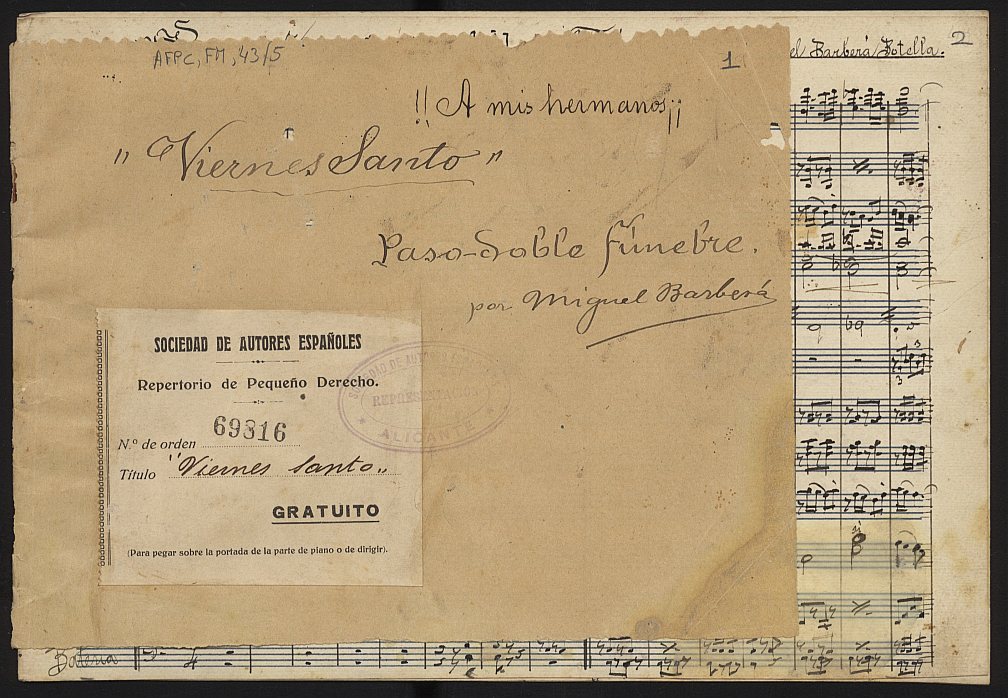 AFPC, FM, 43/5
1
el Barberá Botella.
2
!! A mis hermanos ¡¡
" Viernes Santo "
Paso-doble fúnebre.
por Miguel Barberá
SOCIEDAD DE AUTORES ESPAÑOLES
Repertorio de Pequeño Derecho.
N.º de orden 69816
Título "Viernes Santo"
GRATUITO
(Para pegar sobre la portada de la parte de piano o de dirigir).
SOCIEDAD DE AUTORES
ALICANTE
Batería